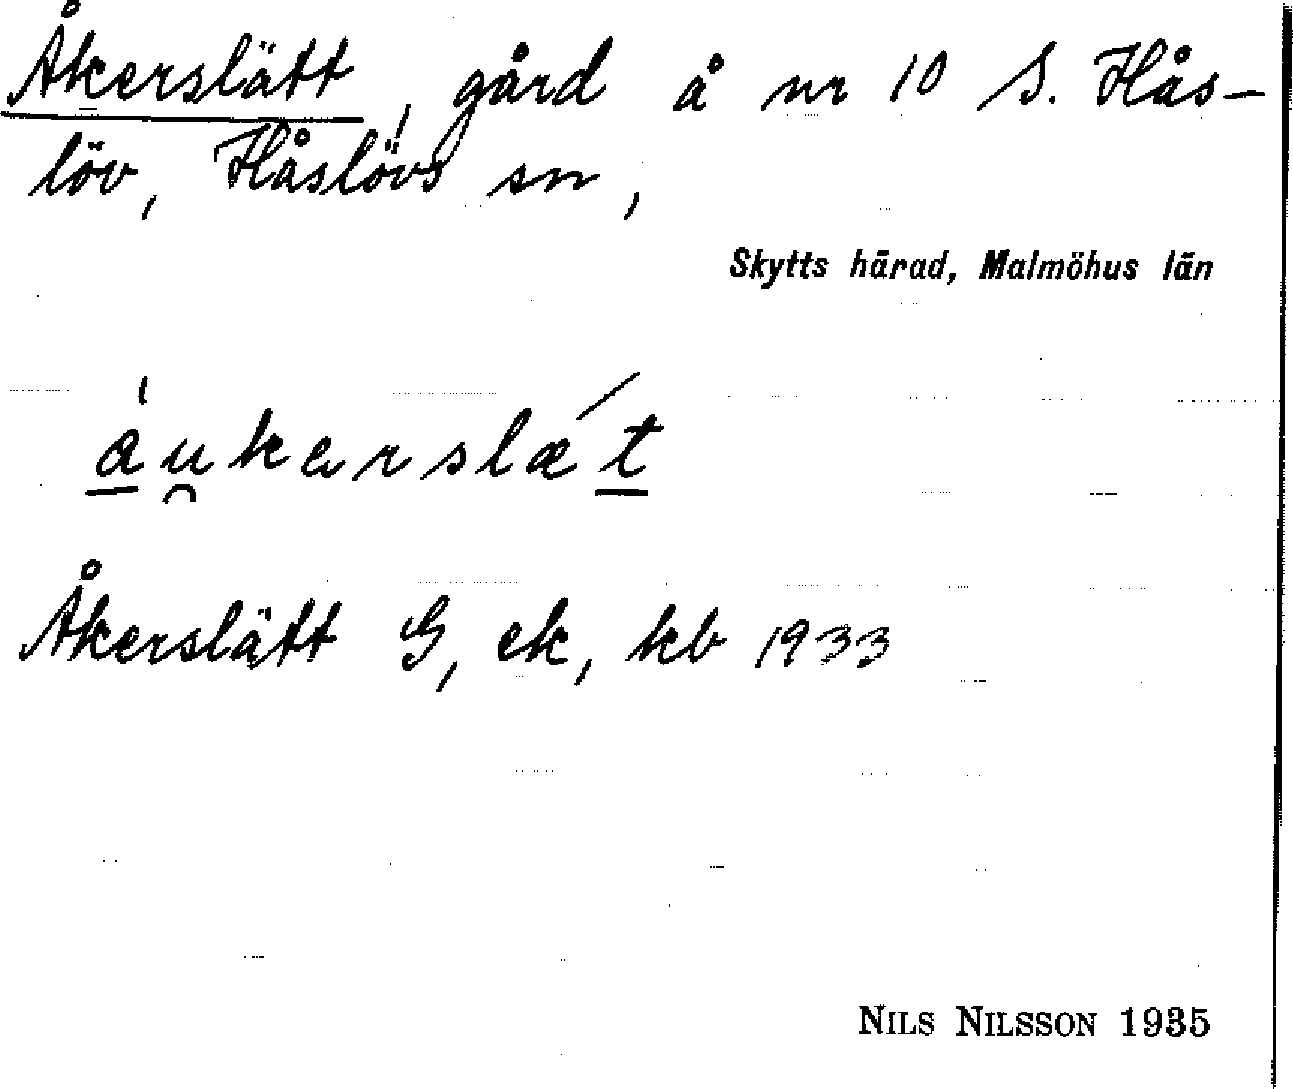 Åkerslätt, gård å nr 10 S. Hås-
löv, Håslövs sn,
Skytts härad, Malmöhus län
áu̯kɐrslæ´t
Åkerslätt G, ek, kb 1933
NILS NILSSON 1935